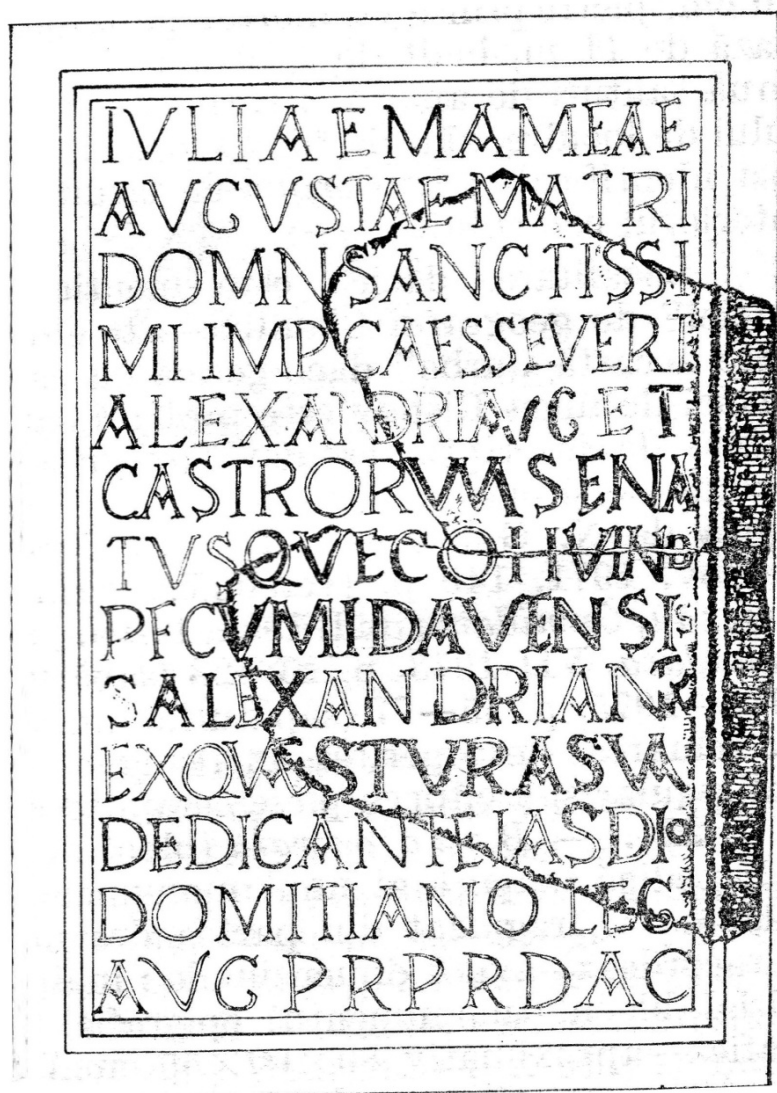 IVLIAE MAMEAE
AVGVSTAE MATRI
DOMN SANCTISSI
MI IMP CAES SEVERI
ALEXANDRI AVG ET
CASTRORVM SENA
TVSQVE COH I VIND
P F CVMIDAVENSIS
S ALEXANDRIANA
EX QVAESTVRA SVA
DEDICANTE IAS DIO
DOMITIANO LEG
AVG PR PR DAC